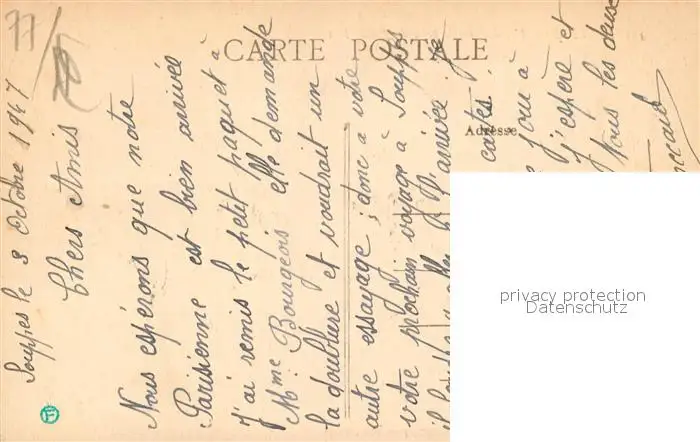 77
CARTE POSTALE
Adresse
Souppes le 3 Octobre 1947
Chers Amis
Nous espérons que notre
Parisienne est bien arrivée
J'ai remis le petit paquet à
Mme Bourgeois elle demande
la doublure et voudrait un
autre essayage; donc à votre
votre prochain voyage à Souppes
il faudra
arrivée je
cartes
joui à
j'espère et
tous les deux
privacy protection
Datenschutz